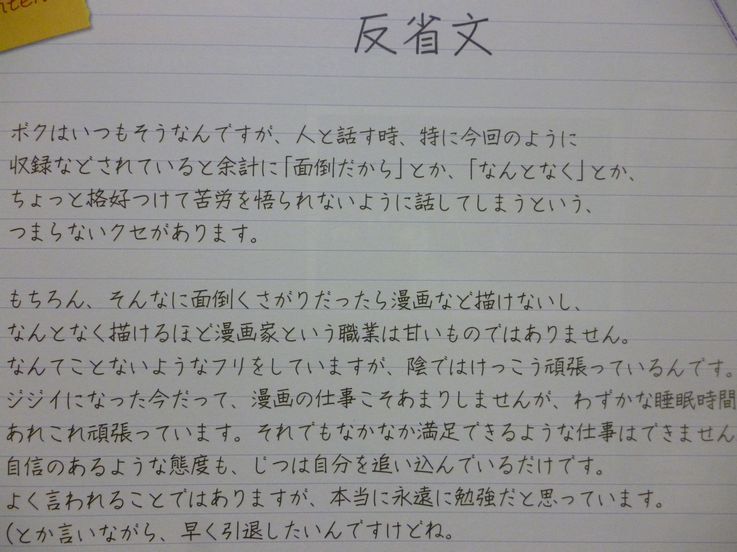 反省文
ボクはいつもそうなんですが、人と話す時、特に今回のように
収録などされていると余計に「面倒だから」とか、「なんとなく」とか、
ちょっと格好つけて苦労を悟られないように話してしまうという、
つまらないクセがあります。
もちろん、そんなに面倒くさがりだったら漫画など描けないし、
なんとなく描けるほど漫画家という職業は甘いものではありません。
なんてことないようなフリをしていますが、陰ではけっこう頑張っているんです。
ジジイになった今だって、漫画の仕事こそあまりしませんが、わずかな睡眠時間
あれこれ頑張っています。それでもなかなか満足できるような仕事はできません
自信のあるような態度も、じつは自分を追い込んでいるだけです。
よく言われることではありますが、本当に永遠に勉強だと思っています。
(とか言いながら、早く引退したいんですけどね。